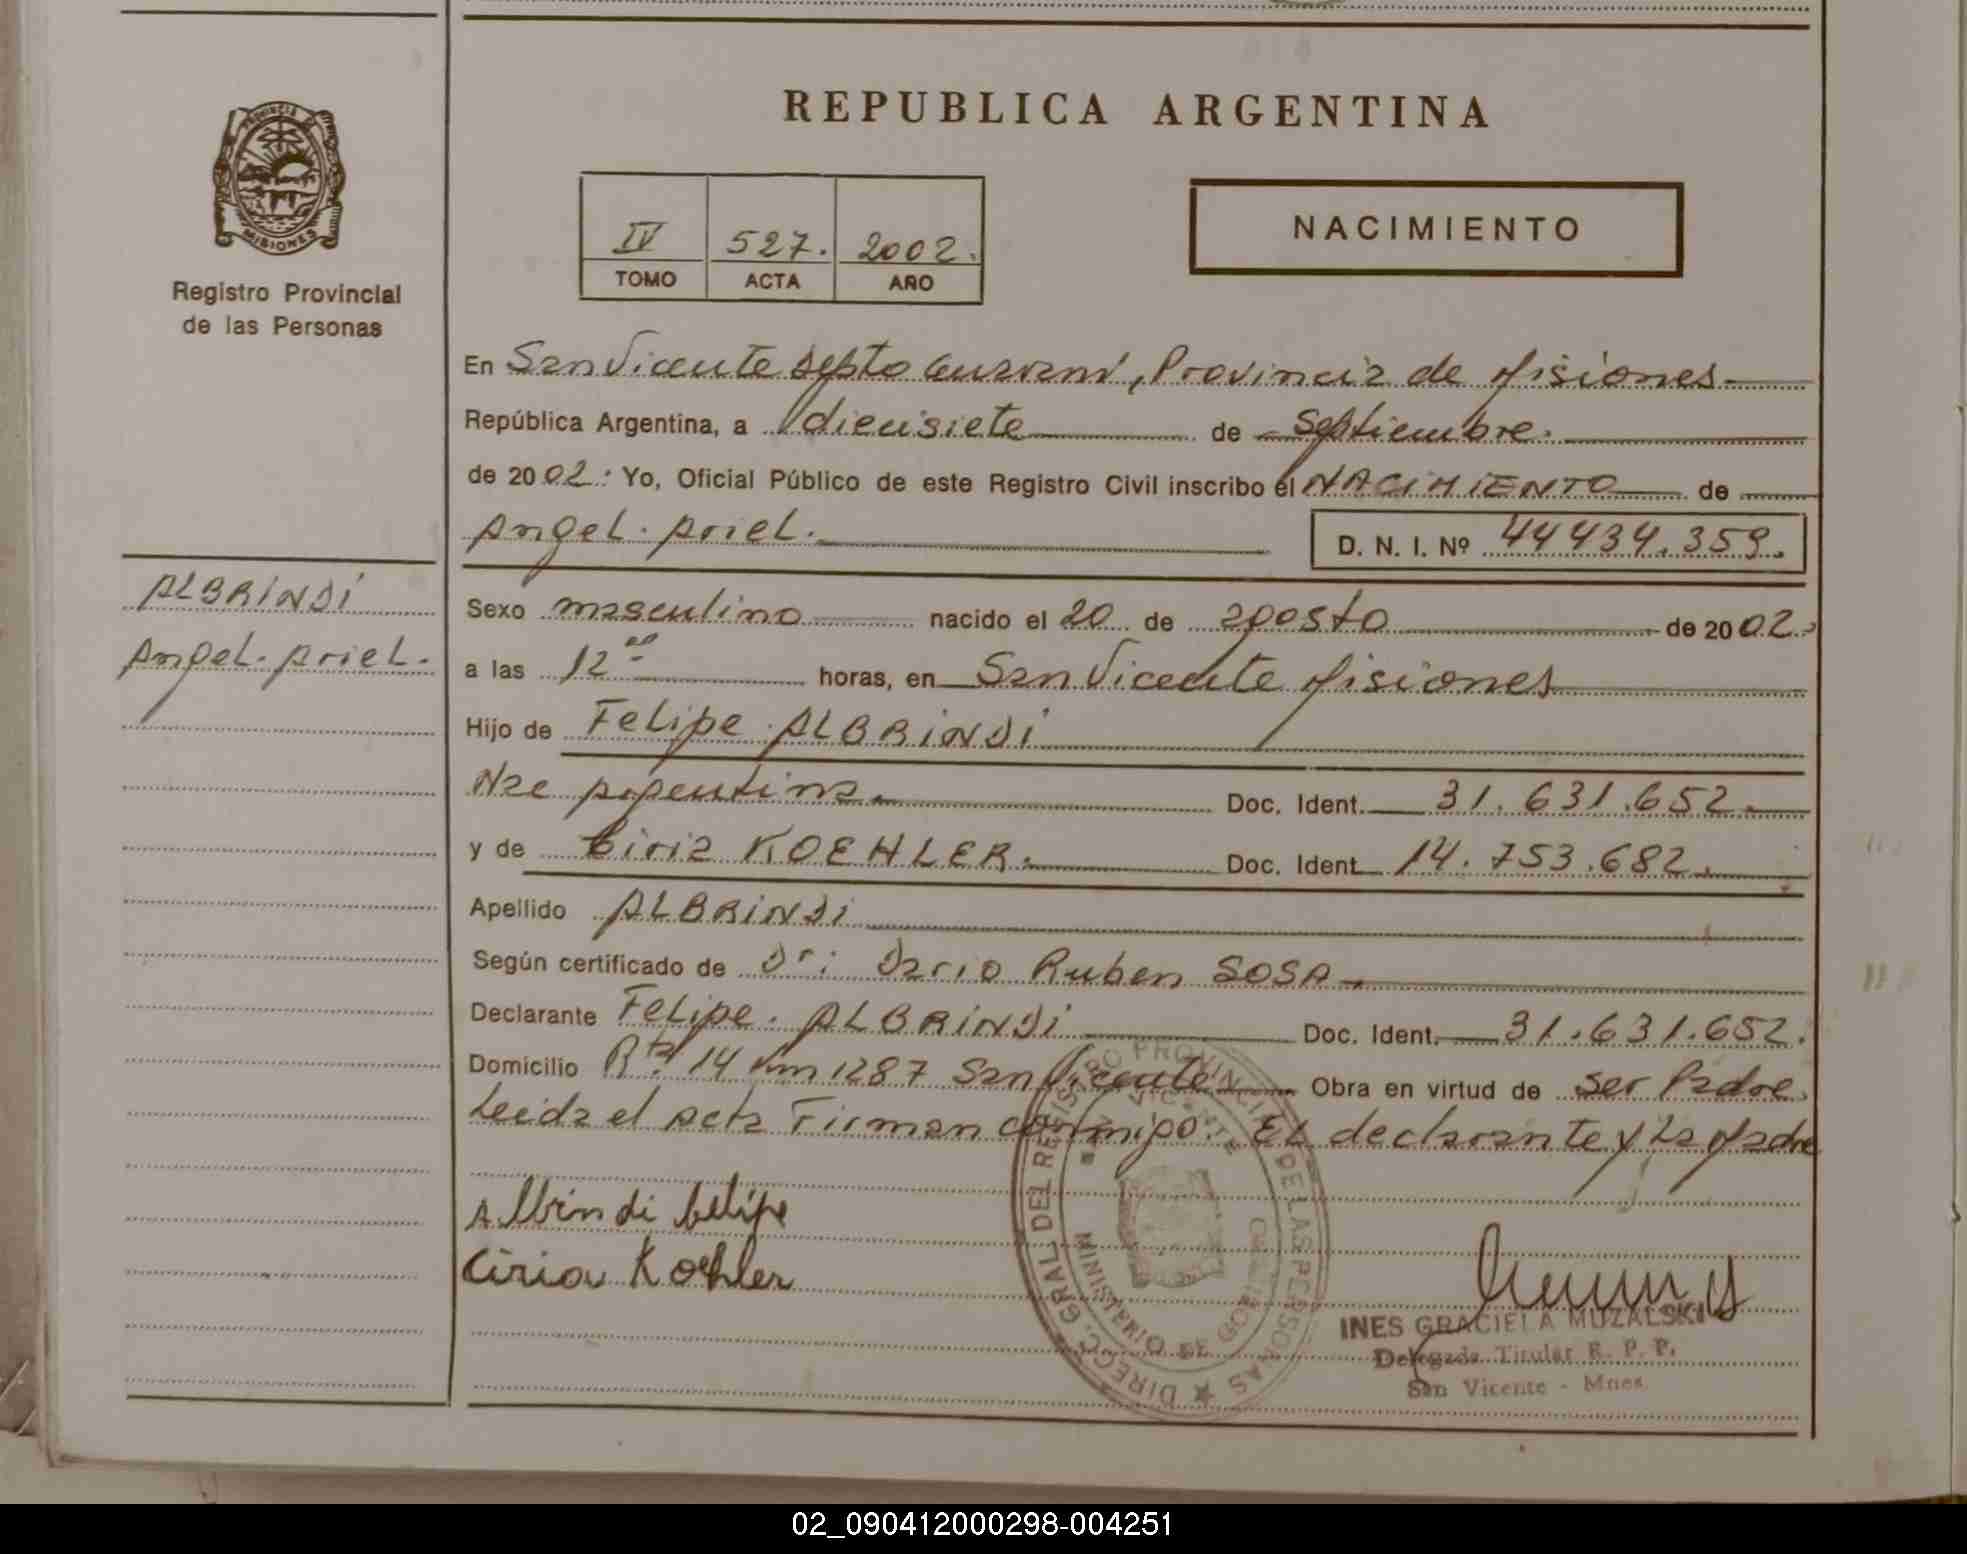 REPUBLICA ARGENTINA
PROVINCIA DE
MISIONES
Registro Provincial
de las Personas
IV 527. 2002.
TOMO ACTA AÑO
NACIMIENTO
En San Vicente Depto Guaraní, Provincia de Misiones
República Argentina, a diecisiete de Septiembre.
de 2002. Yo, Oficial Público de este Registro Civil inscribo el NACIMIENTO de
Angel. Ariel. D. N. I. Nº 44434.359.
ALBRINDI
Angel. Ariel.
Sexo masculino nacido el 20 de agosto de 2002.
a las 12 horas, en San Vicente Misiones
Hijo de Felipe ALBRINDI
Nac Argentina. Doc. Ident. 31.631.652.
y de Ciria KOEHLER. Doc. Ident. 14.753.682.
Apellido ALBRINDI
Según certificado de Dr: Dario Ruben SOSA.
Declarante Felipe. ALBRINDI Doc. Ident. 31.631.652.
Domicilio Rta 14 Km 1287 San Vicente Obra en virtud de ser Padre.
Leida el Acta Firman conmigo: El declarante y La Madre
Albrindi Felipe
Ciria Koehler
DIRECC. GRAL. DEL REGISTRO PROVINCIAL DE LAS PERSONAS
SAN VICENTE
MINISTERIO DE GOBIERNO
INES GRACIELA MUZALSKI
Delegada Titular R. P. P.
San Vicente - Mnes.
02_090412000298-004251